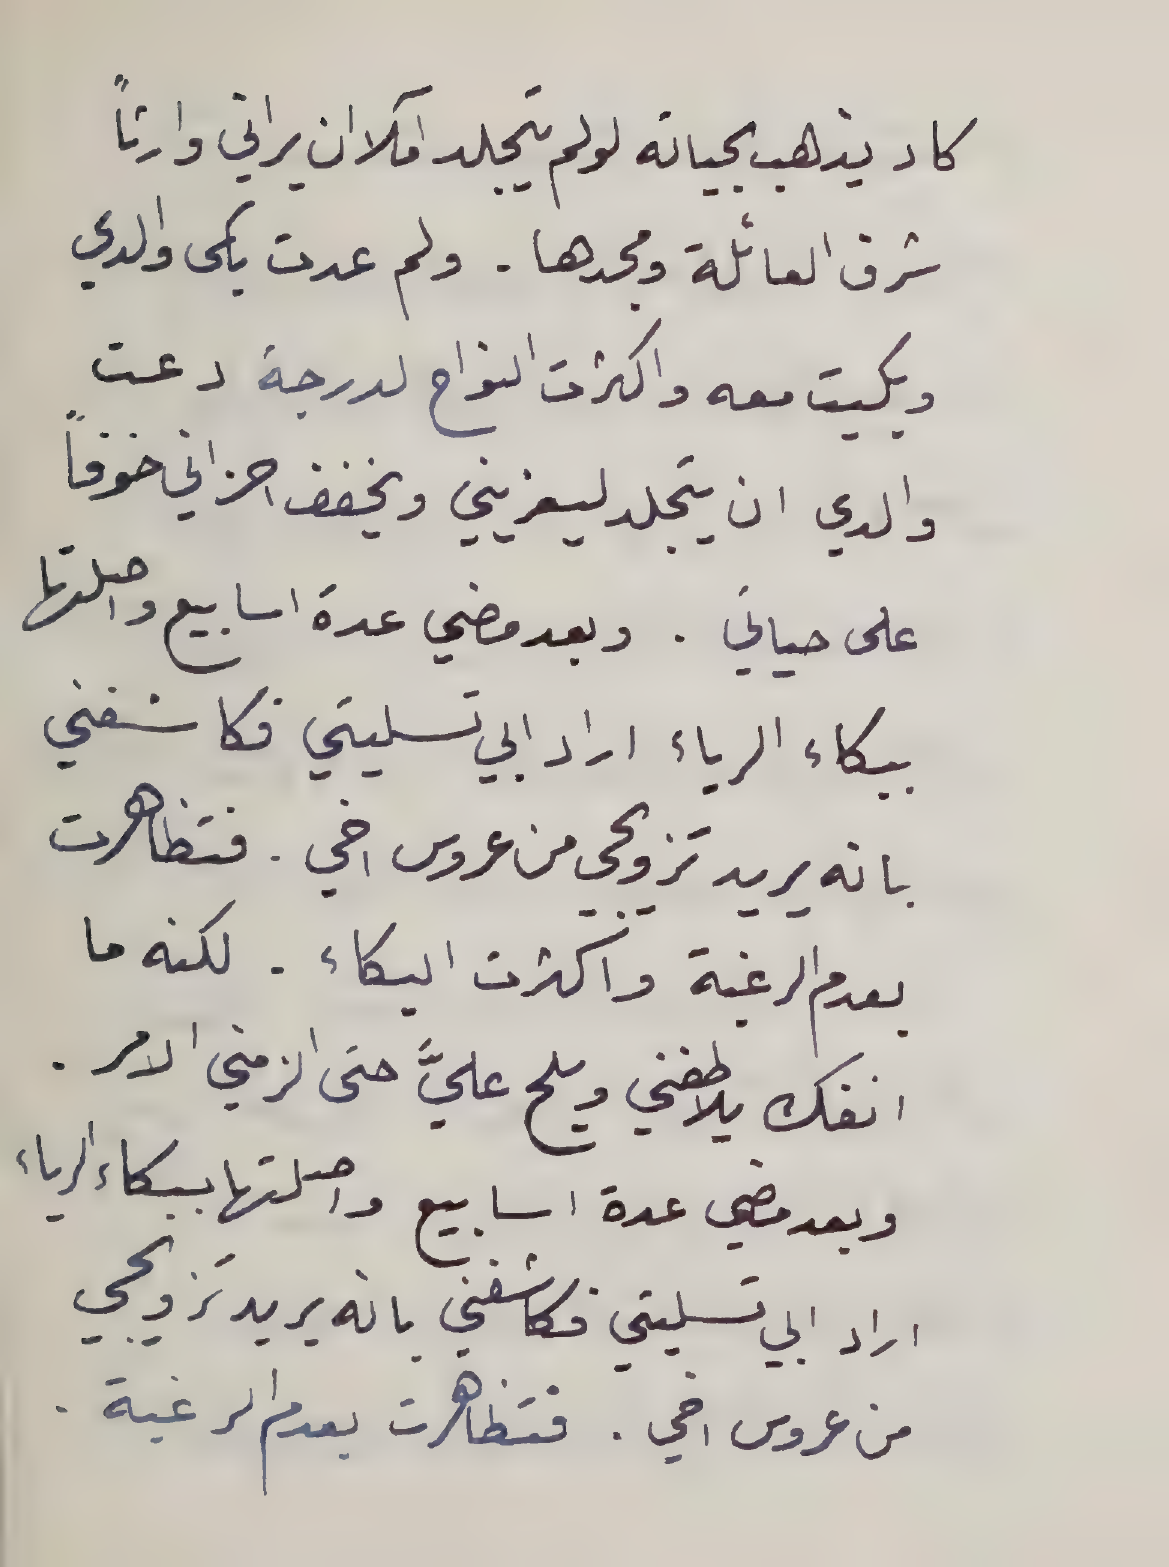 كاد يذهب بحياته لو لم يتجلد املا ان يراني وارثاً
شرف العائلة ومجدها . ولم عدت بكى والدي
وبكيت معه واكثرت النواح لدرجة دعت
والدي ان يتجلد ليعزيني ويخفف احزاني خوفاً
على حياتي . وبعد مضي عدة اسابيع واصلتها
ببكاء الرياء اراد ابي تسليتي فكاشفني
بانه يريد تزويجي من عروس اخي . فتظاهرت
بعدم الرغبة واكثرت البكاء . لكنه ما
انفك يلاطفني ويلح عليَّ حتى الزمني الامر .
وبعد مضي عدة اسابيع واصلتها ببكاء الرياء
اراد ابي تسليتي فكاشفني بانه يريد تزويجي
من عروس اخي . فتظاهرت بعدم الرغبة .